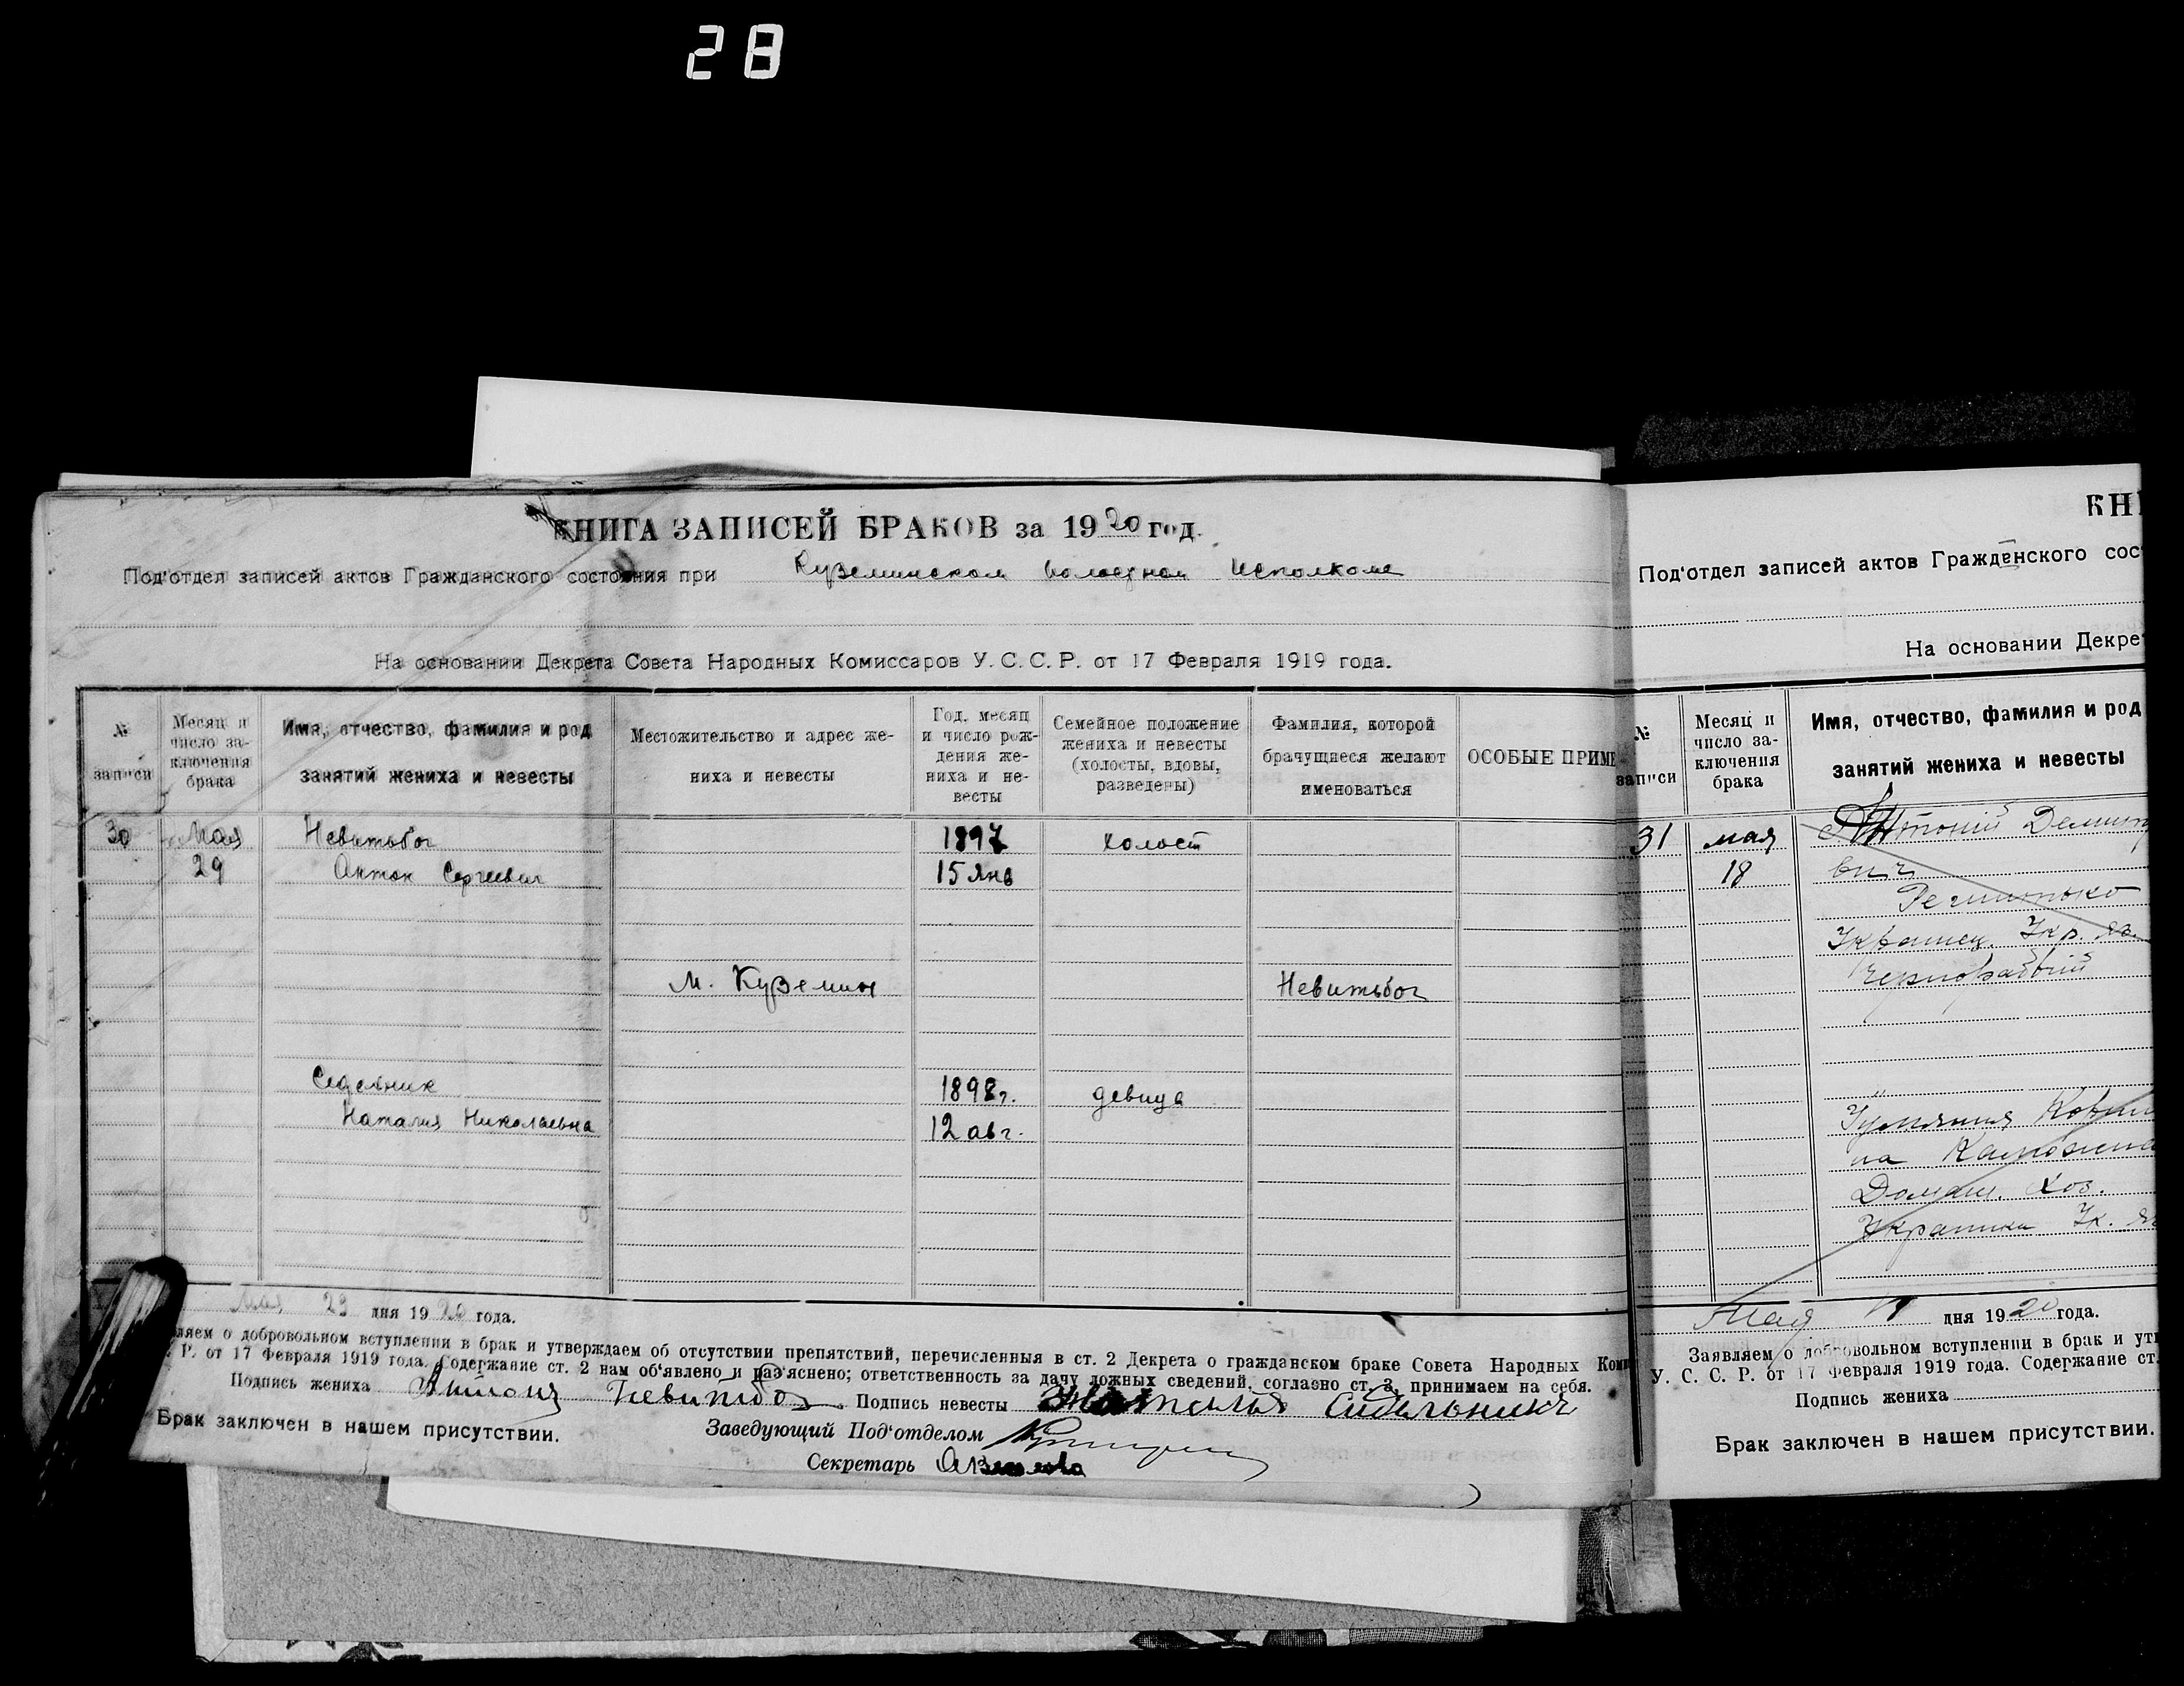 28
КНИГА ЗАПИСЕЙ БРАКОВ за 1920 год.
Под'отдел записей актов Гражданского состояния при Куземинском волостном Исполкоме
На основании Декрета Совета Народных Комиссаров У. С. С. Р. от 17 Февраля 1919 года.
№ записи
Месяц и число заключения брака
Имя, отчество, фамилия и род занятий жениха и невесты
Местожительство и адрес жениха и невесты
Год, месяц и число рождения жениха и невесты
Семейное положение жениха и невесты (холосты, вдовы, разведены)
Фамилия, которой брачущиеся желают именоваться
ОСОБЫЕ ПРИМЕ
30 Мая Невитьбог 1897 холост
29 Антон Сергеевич 15 Янв
М. Куземин Невитьбог
Седельник 1898 г. девица
Наталия Николаевна 12 авг.
Мая 29 дня 1920 года.
ляем о добровольном вступлении в брак и утверждаем об отсутствии препятствий, перечисленныя в ст. 2 Декрета о гражданском браке Совета Народных Коми
Р. от 17 Февраля 1919 года. Содержание ст. 2 нам об'явлено и раз'яснено; ответственность за дачу ложных сведений, согласно ст. 3, принимаем на себя.
Подпись жениха Антонъ Невитбог Подпись невесты Наталья Сидельникъ
Брак заключен в нашем присутствии. Заведующий Под'отделом
Секретарь
КНИ
Под'отдел записей актов Гражданского сос
На основании Декре
№ записи
Месяц и число заключения брака
Имя, отчество, фамилия и род занятий жениха и невесты
31 мая Антоній
18 вич
Украинец. Укр. яз.
Чернорабочій
на
Домаш. хоз.
Украинка Ук. яз
Мая 18 дня 1920 года.
Заявляем о добровольном вступлении в брак и ут
У. С. С. Р. от 17 Февраля 1919 года. Содержание ст.
Подпись жениха
Брак заключен в нашем присутствии.